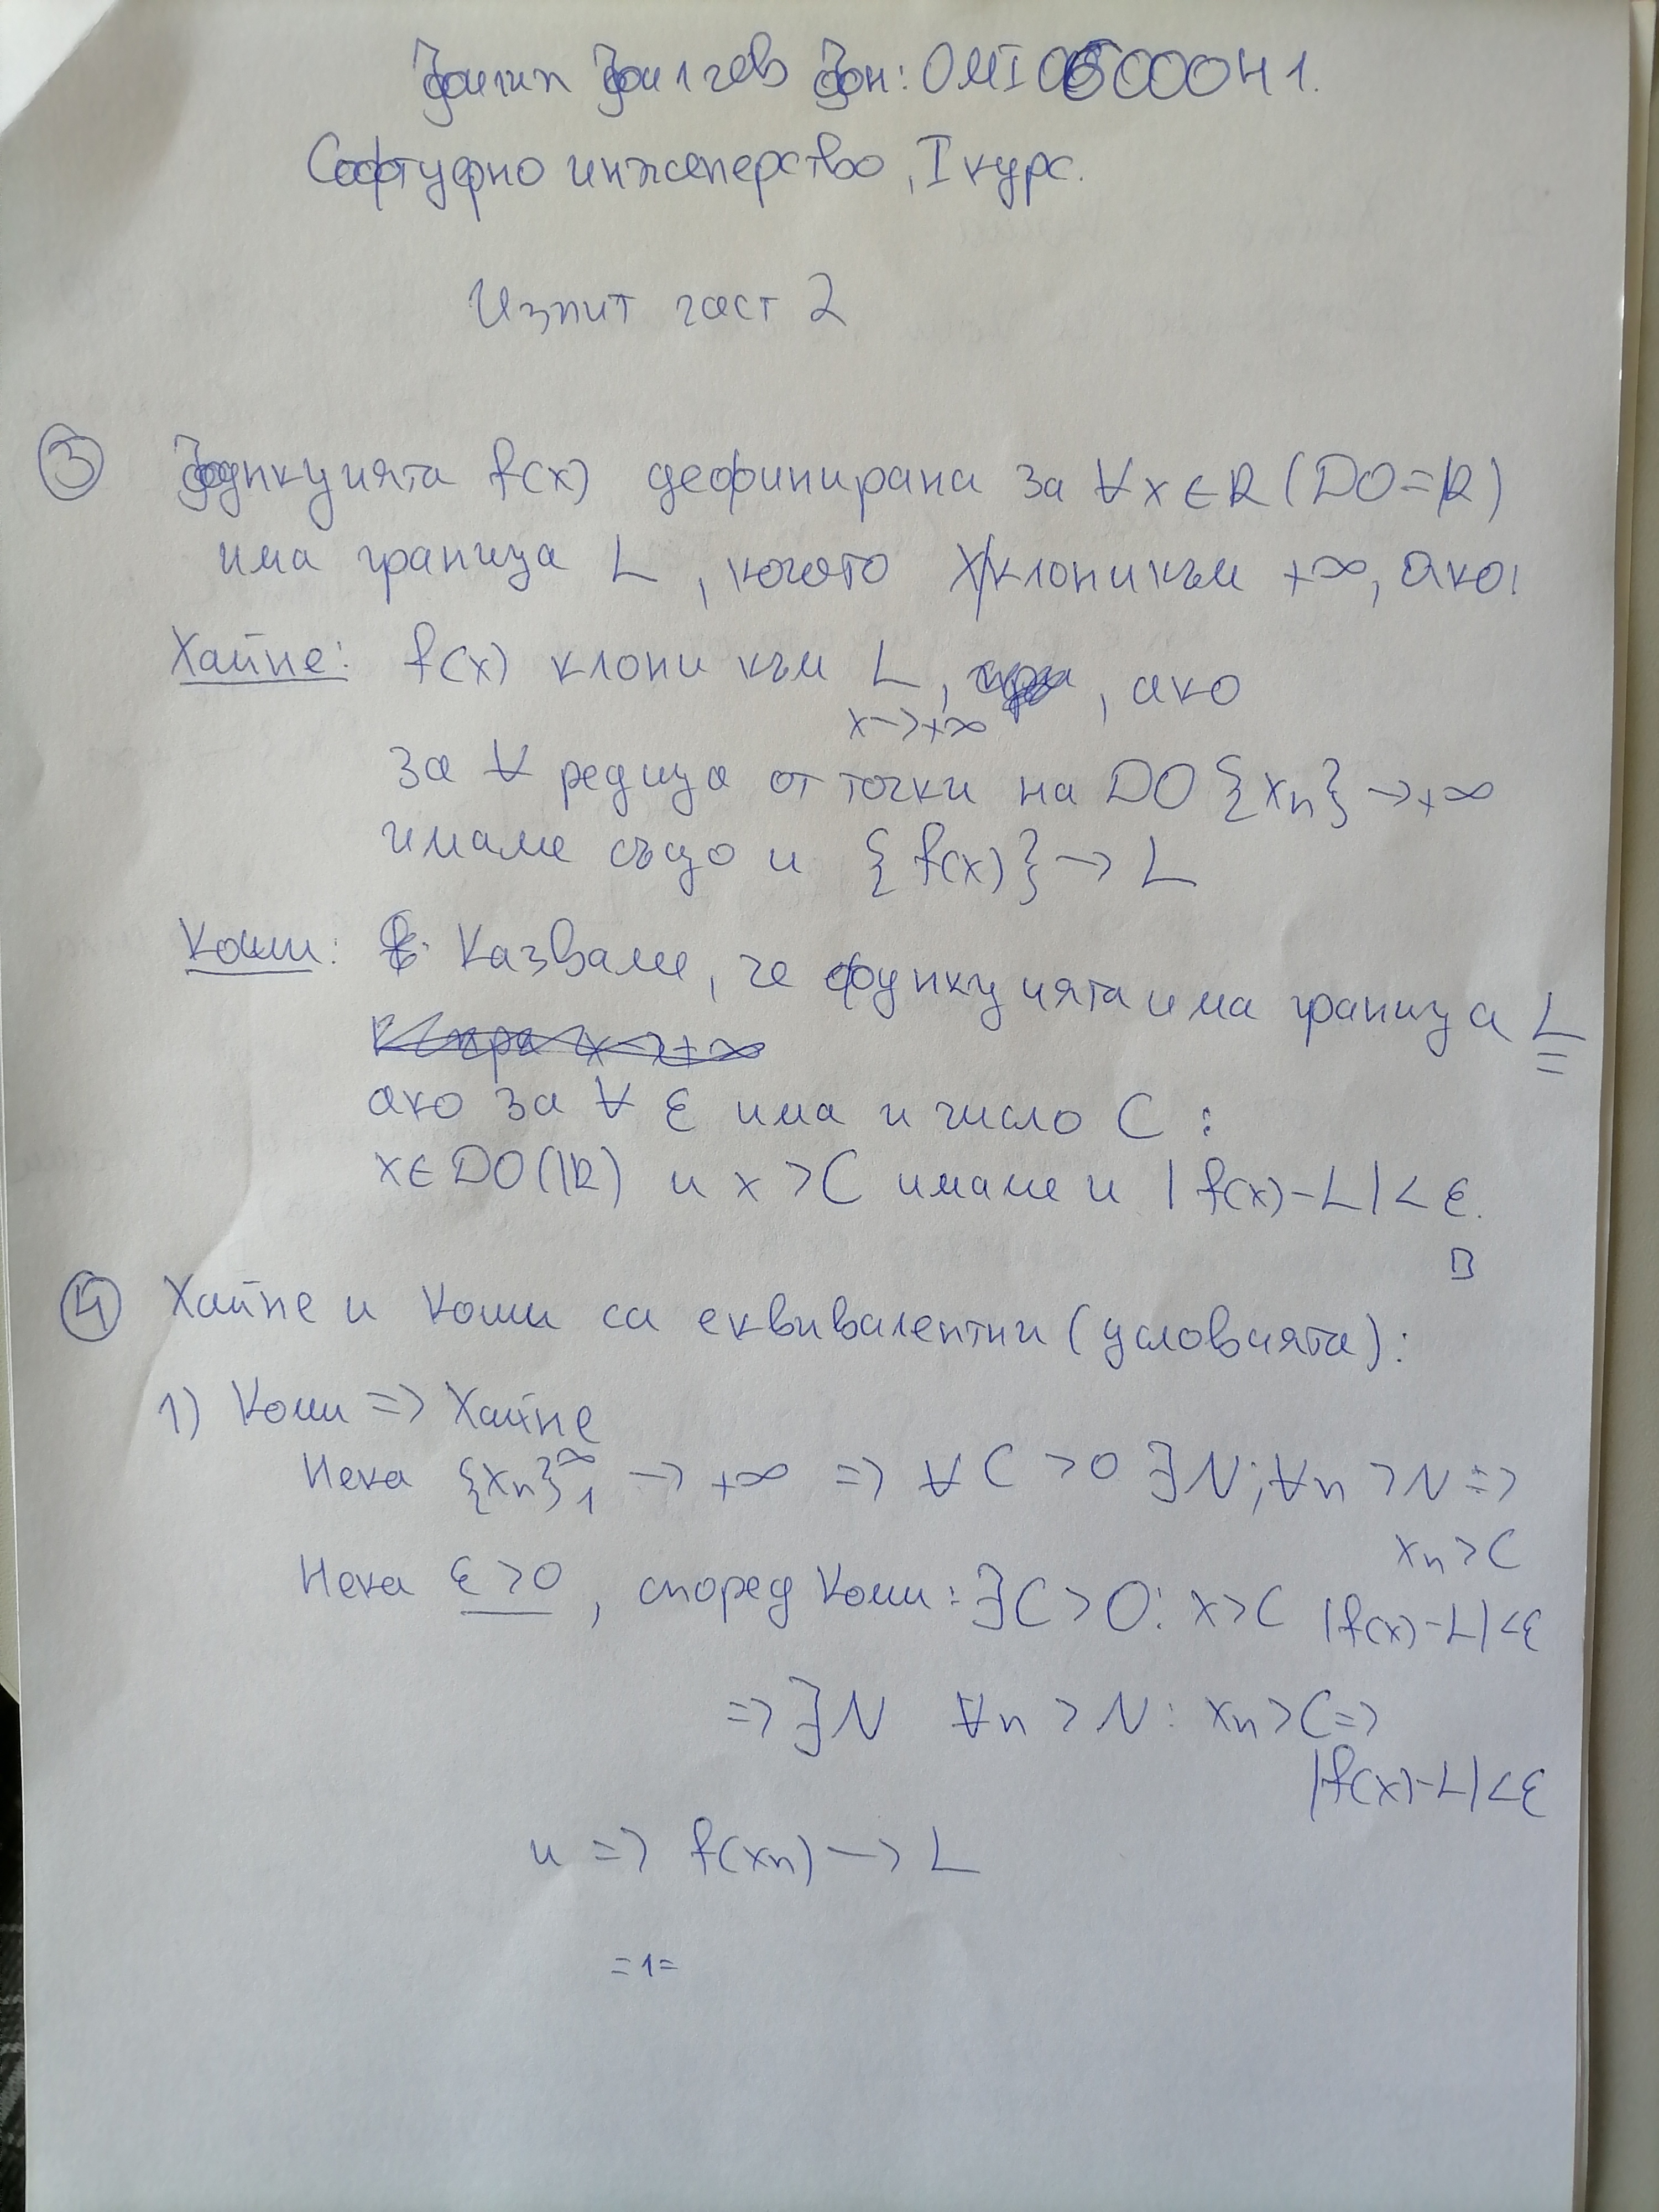 Филип Филчев Фн: 0MI0600041.
Софтуерно инженерство, I курс.
Изпит част 2
③ Функцията f(x) дефинирана за ∀x∈R (DO=ℝ)
има граница L, когато x клони към +∞, ако:
Хайне: f(x) клони към L, , ако
x→+∞
за ∀ редица от точки на DO {xₙ}→+∞
имаме също и {f(x)}→L
Коши: Казваме, че функцията има граница L
ако за ∀ ε има и число C :
x∈DO(ℝ) и x>C имаме и |f(x)-L|<ε.
④ Хайне и Коши са еквивалентни (условията):
1) Коши => Хайне
Нека {xₙ}₁^∞ → +∞ => ∀ C >0 ∃N; ∀n >N =>
xₙ>C
Нека ε>0, според Коши: ∃C>0: x>C |f(x)-L|<ε
=> ∃N ∀n >N: xₙ>C =>
|f(x)-L|<ε
и => f(xₙ)→L
=1=